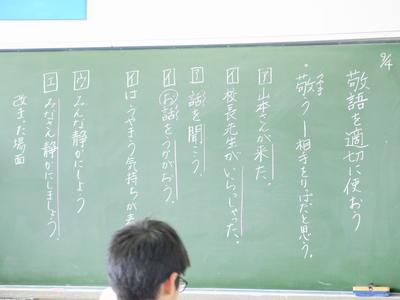 9/4
敬語を適切に使おう
・敬う―相手をりっぱだと思う。
ア 山本さんが来た。
イ 校長先生がいらっしゃった。
ア 話を聞こう。
イ お話をうかがおう。
イはうやまう気持ちが
ウ みんな静かにしよう
エ みなさん静かにしましょう。
改まった場面